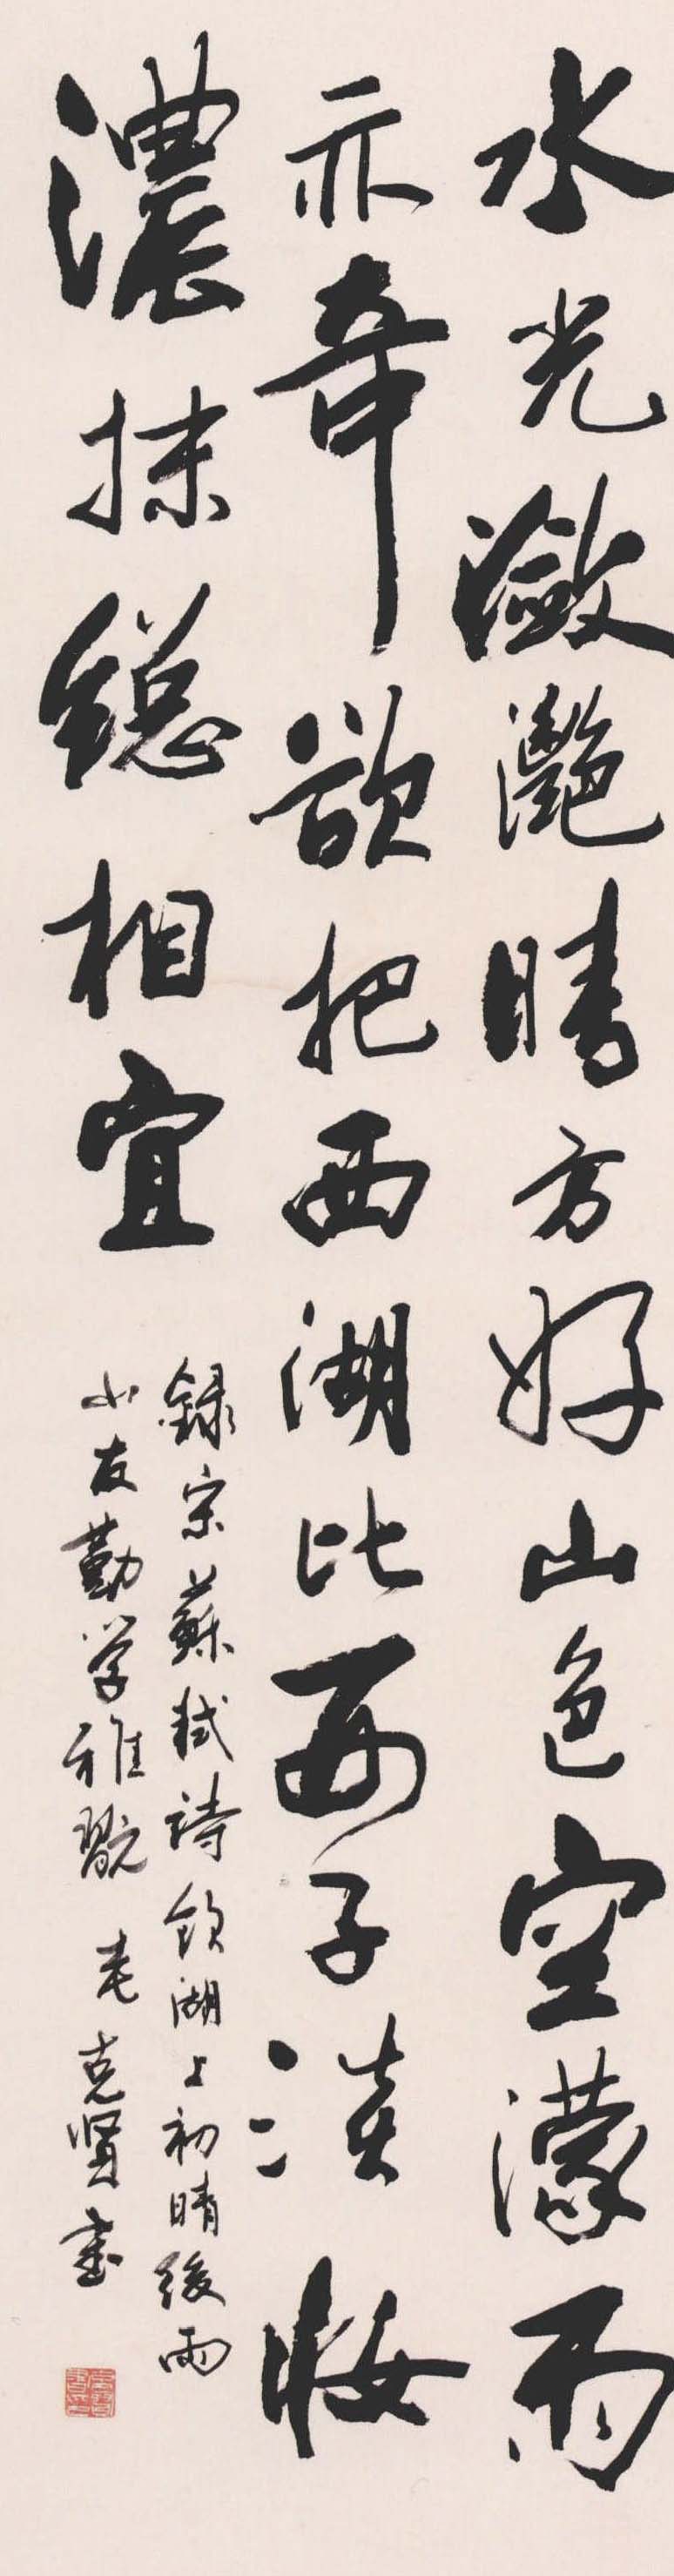 水光瀲灧晴方好山色空濛雨
亦奇欲把西湖比西子淡妝
濃抹總相宜
録宋蘇軾詩飲湖上初晴後雨
小友勤学雅翫 克贤書